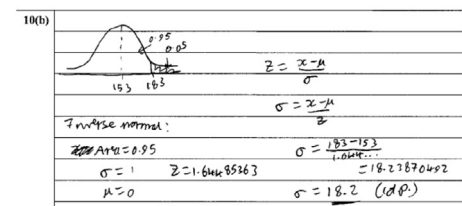 10(b)
0.95
0.05
153 183
z = x-μ / σ
σ = x-μ / z
Inverse normal:
Area=0.95
σ = 1 Z=1.64485363
μ=0
σ = 183-153 / 1.644...
=18.23870492
σ = 18.2 (1dp.)